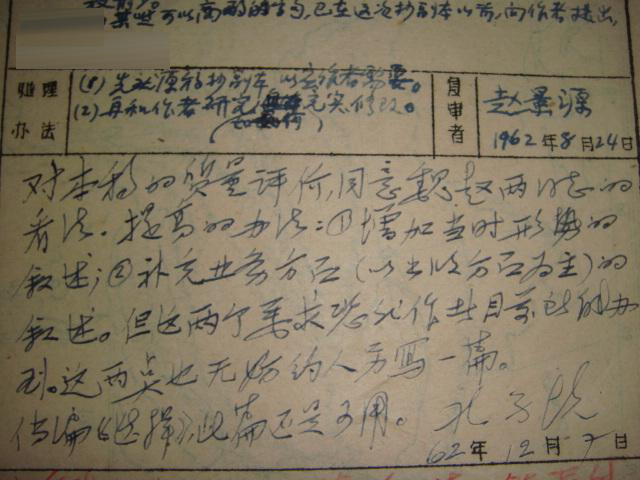 某些可以商酌的字句,已在这次抄副本以前,向作者提出,
处理办法
(1)先就原稿抄副本 以应读者需要。
(2)再和作者研究如何充实修改。
复审者
赵景源
1962年8月24日
对本稿的质量评价,同意魏赵两同志的
看法。提高的办法:①增加当时形势的
叙述;②补充业务方面(以出版方面为主)的
叙述。但这两个要求恐非作者目前所能办
到。这两点也无妨约人另写一篇。
倘编《选择》,此篇还是可用。
62年12月7日